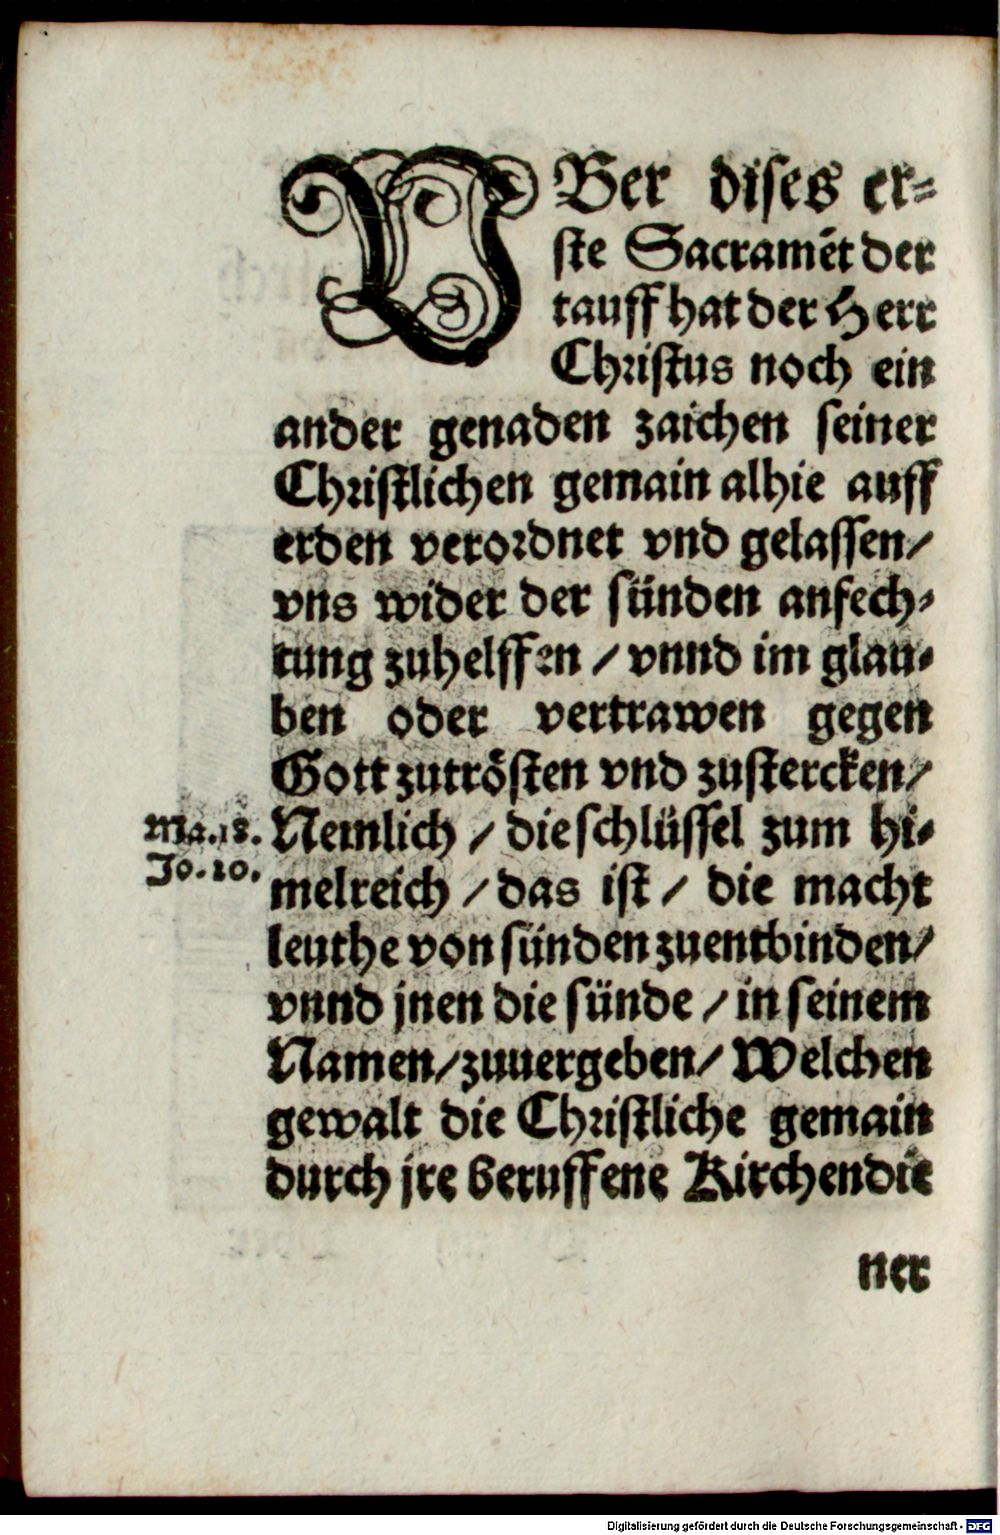 VBer dises er⸗
ste Sacramēt der
tauff hat der Herr
Christus noch ein
ander genaden zaichen seiner
Christlichen gemain alhie auff
erden verordnet vnd gelassen/
vns wider der sünden anfech⸗
tung zuhelffen / vnnd im glau⸗
ben oder vertrawen gegen
Gott zutrösten vnd zustercken/
Ma.18.
Jo.20.
Nemlich / die schlüssel zum hi⸗
melreich / das ist / die macht
leuthe von sünden zuentbinden/
vnnd jnen die sünde / in seinem
Namen/zuuergeben/ Welchen
gewalt die Christliche gemain
durch jre beruffene Kirchendie
ner
Digitalisierung gefördert durch die Deutsche Forschungsgemeinschaft - DFG